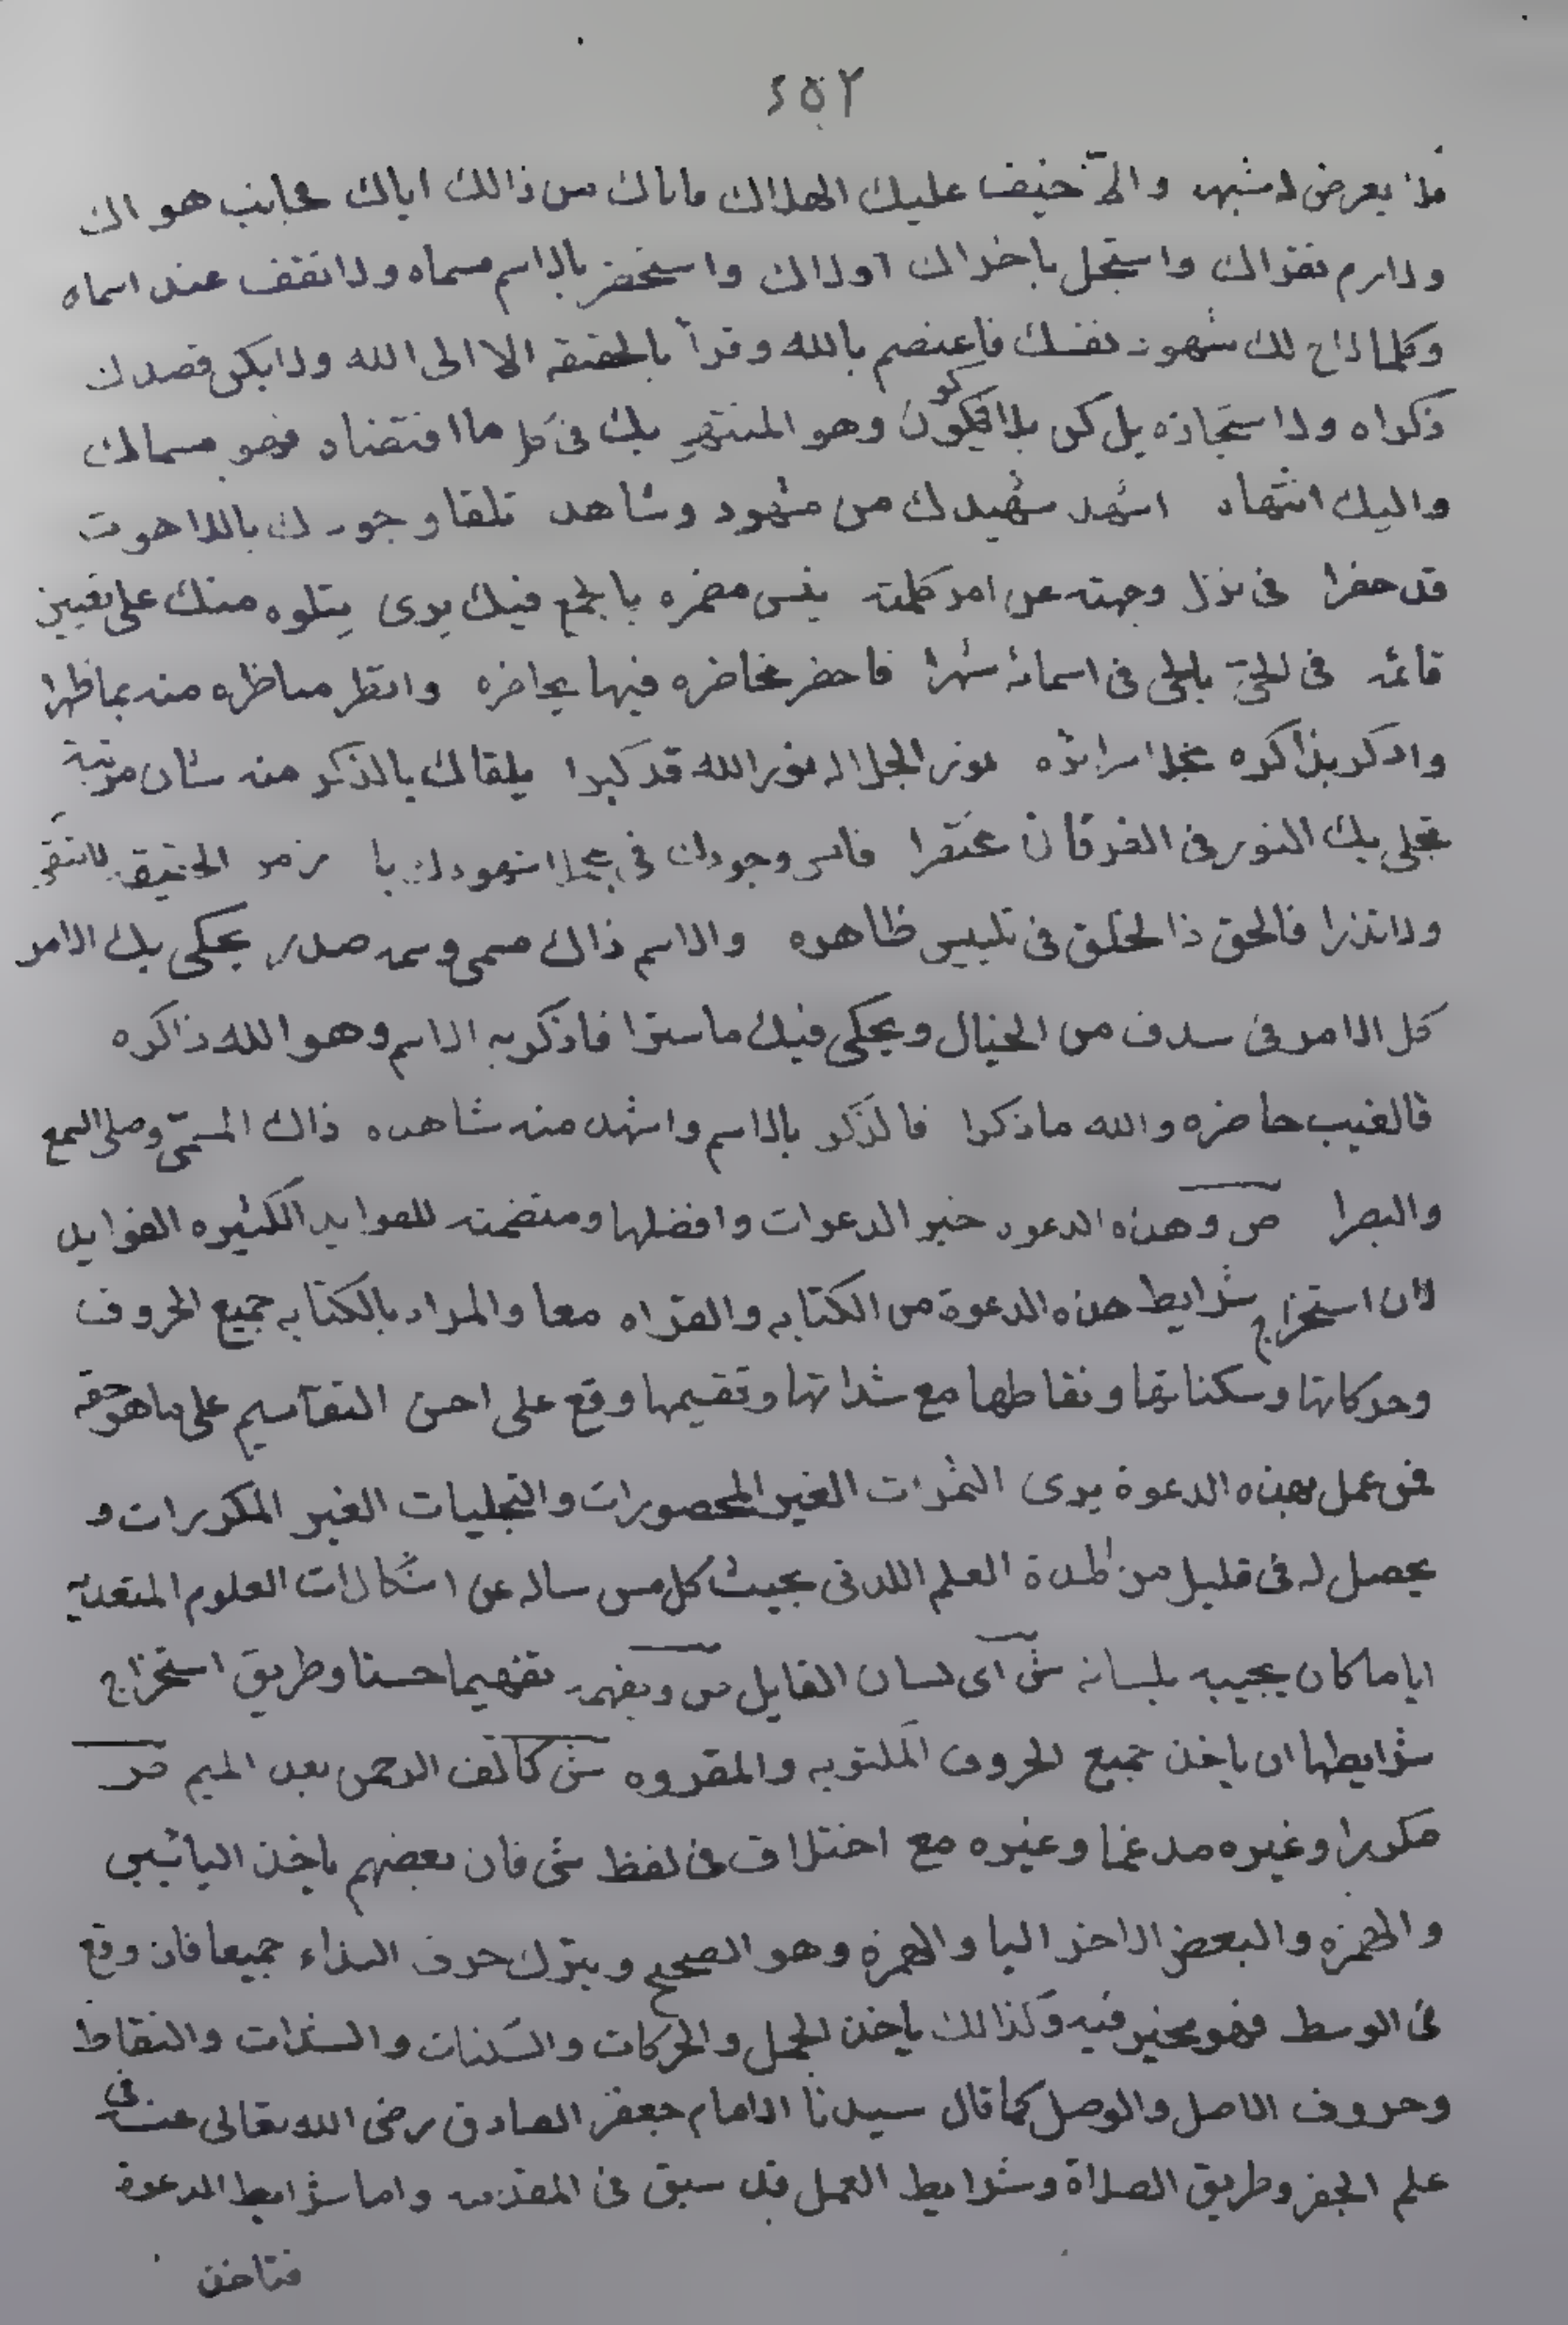 ٢٥٢
فلا يعرض لا مشبهه والا خيف عليك الهلاك فاياك من ذالك اياك مجانب هواك
ولا ترم نقراك واستجل باخراك اولاك واستحضر بالاسم مسماه ولا تقف عند اسماه
وكلما لاح لك شهود نفسك فاعتصم بالله وقرأ بالحقيقه الا الى الله ولا يكن قصدك
ذكراه ولا استجازه بل كن بلا فيكون وهو المنتهى بك فى كل ما اقتضاه فهو مسماك
واليك انتهاه اشهد شهيدك من مشهود وشاهد تلقا وجودك باللاهوت
قد حضرا فى نزل وجهته عن امر كلمته بنفس مضمره بالجمع فيك يرى يتلوه منك على تعيين
قائمه فى الحى بالحى فى اسمائه شهرا فاحضر محاضره فيها يحاضره وانظر مناظره منه بما ظهرا
واذكر بذاكره مجلا سرائره نور الجلاله نور الله قد كبرا يلقاك بالذكر منه شان مرتبة
تجلى بك النور فى الفرقان محتقرا فانس وجودك فى مجلا شهودك يا رمز الحقيقه لا تبقى
ولا تذرا فالحق ذا الخلق فى تلبيس ظاهره والاسم ذاك مسمى وسمه صدر يحكى بك الامر
كل الامر فى سدف من الخيال ويحكى فيك ما سترا فاذكر به الاسم وهو الله ذاكره
فالغيب حاضره والله ما ذكرا فالذكر بالاسم واشهد منه شاهده ذاك المسمى وصلى السمع
والبصرا ص وهذه الدعوه خير الدعوات وافضلها ومتضمنه للعوايد الكثيره الفوايد
لان استخراج شرايط هذه الدعوة من الكتابه والقراه معا والمراد بالكتابه جميع الحروف
وحركاتها وسكناتها ونقاطها مع شداتها وتقسيمها وقع على احسن التقاسيم على ما هو حقه
فمن عمل بهذه الدعوة يرى الثمرات الغير المحصورات والتجليات الغير المكررات و
يحصل له فى قليل من المدة العلم اللدنى بحيث كل من ساله عن اشكالات العلوم المتعديه
اياما كان يجيبه بلسانه ش اى لسان القايل ص ويفهمه تفهيما حسنا وطريق استخراج
شرايطها ان ياخذ جميع الحروف المكتوبه والمقروه ش كالف الرحمن بعد الميم ص
مكررا وغيره مدغما وغيره مع اختلاف فى لفظ شى فان بعضهم ياخذ اليائيين
والهمزه والبعض الاخر اليا والهمزه وهو الصحيح ويترك حرف النداء جميعا فان وقع
فى الوسط فهو مخير فيه وكذالك ياخذ الجمل والحركات والسكنات والشدات والنقاط
وحروف الاصل والوصل كما قال سيدنا الامام جعفر الصادق رضى الله تعالى عنه فى
علم الجفر وطريق الصلاة وشرايط العمل قد سبق فى المقدمه واما شرايط الدعوة
فتاخذ